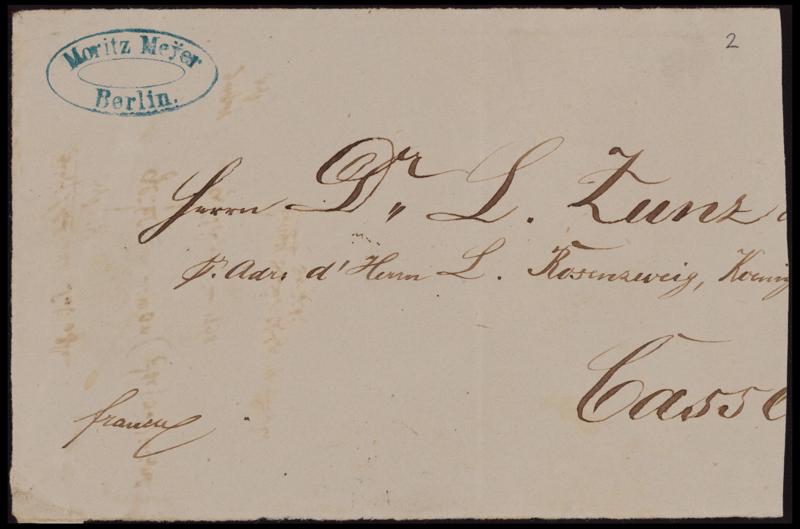 Moritz Meyer
Berlin.
2
Herrn Dr. L. Zunz
p. Adr. d' Herrn L. Rosenzweig, Koenig
Casse
franco